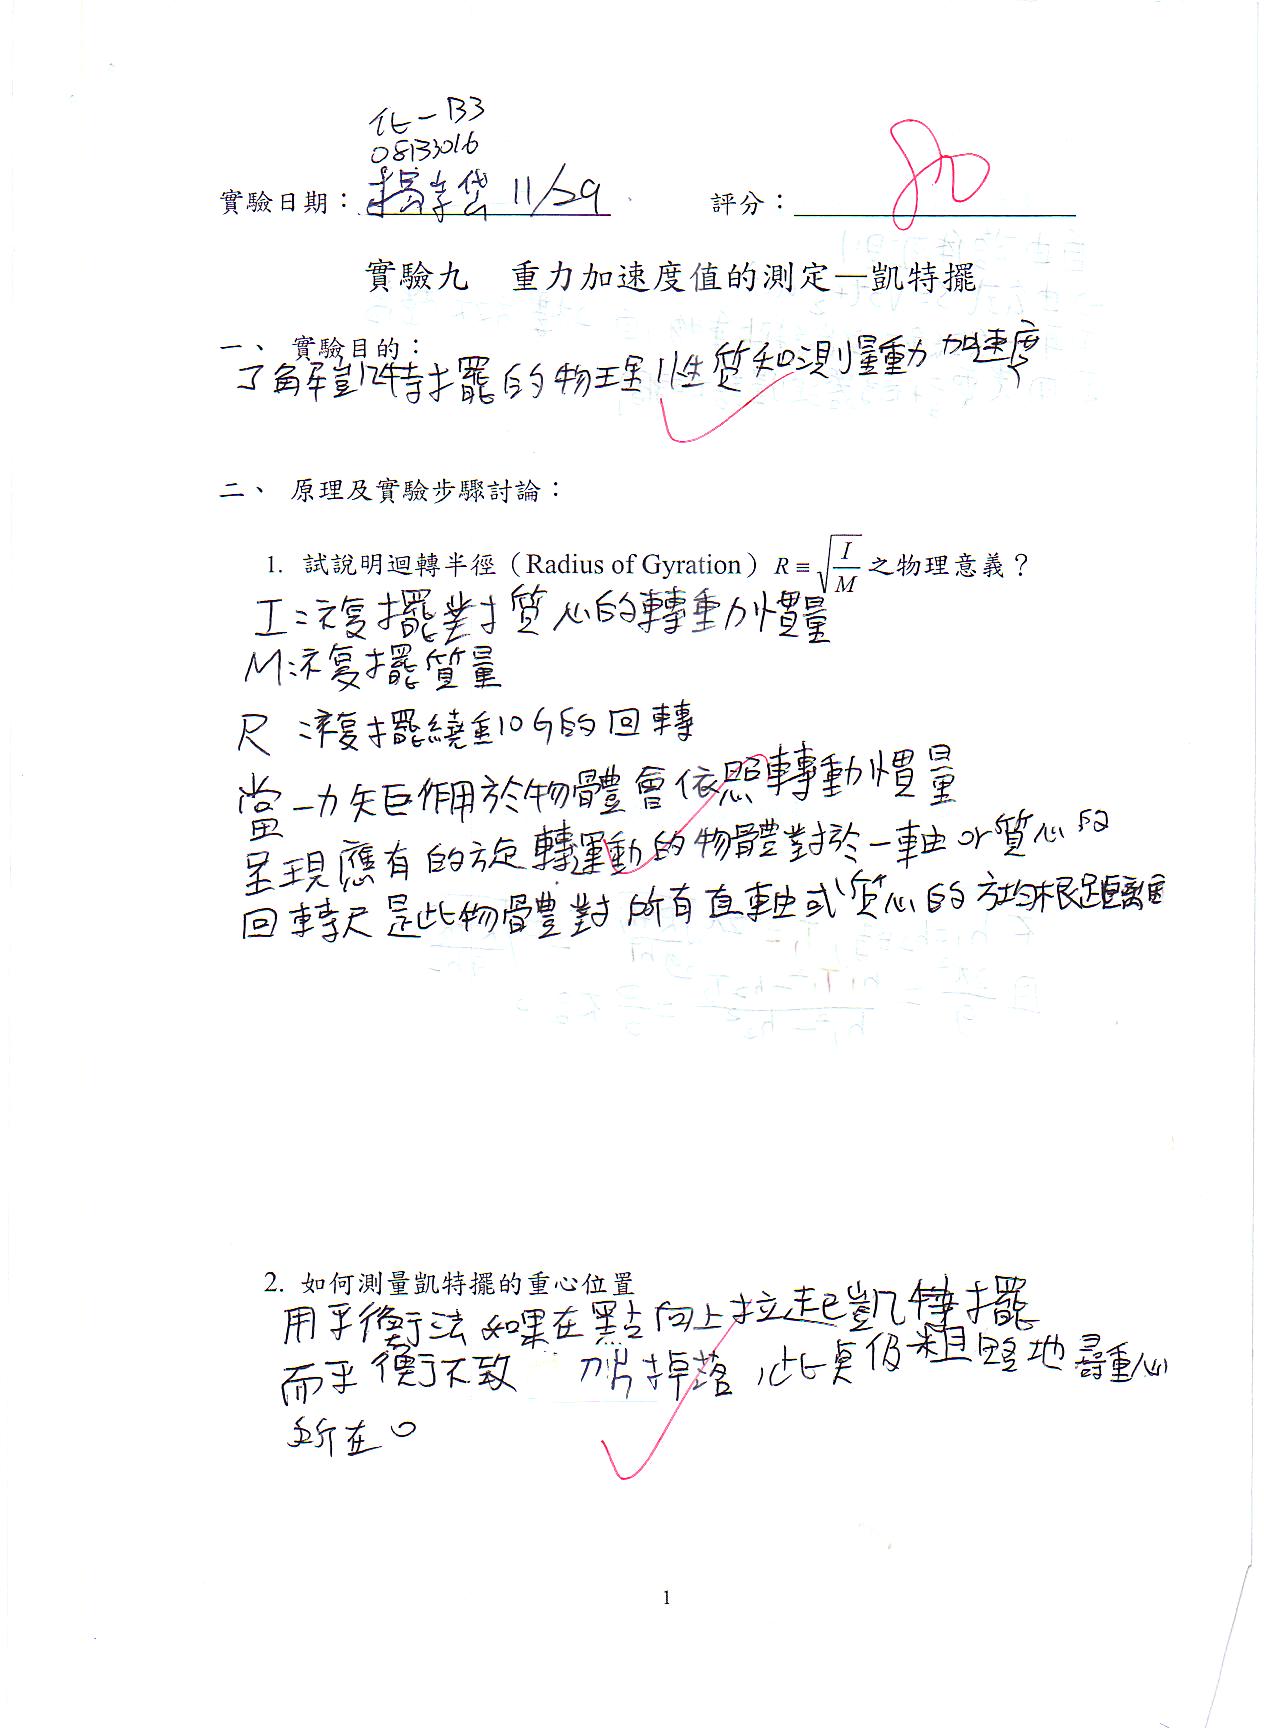 化一B3
08133016
實驗日期：楊 11/29 評分：80
實驗九 重力加速度值的測定—凱特擺
一、 實驗目的：
了解凱特擺的物理性質和測量動力加速度
二、 原理及實驗步驟討論：
1. 試說明迴轉半徑（Radius of Gyration）R ≡ √(I/M) 之物理意義？
I：復擺對質心的轉動慣量
M：復擺質量
R：復擺繞重心G的回轉
當一力矩作用於物體會依照轉動慣量
呈現應有的旋轉運動的物體對於一軸or質心的
回轉尺是此物體對所有直軸或質心的方均根距離
2. 如何測量凱特擺的重心位置
用平衡法如果在點向上拉起凱特擺
而平衡不致 刀片掉落 此 仍粗略地尋重心
所在。
1